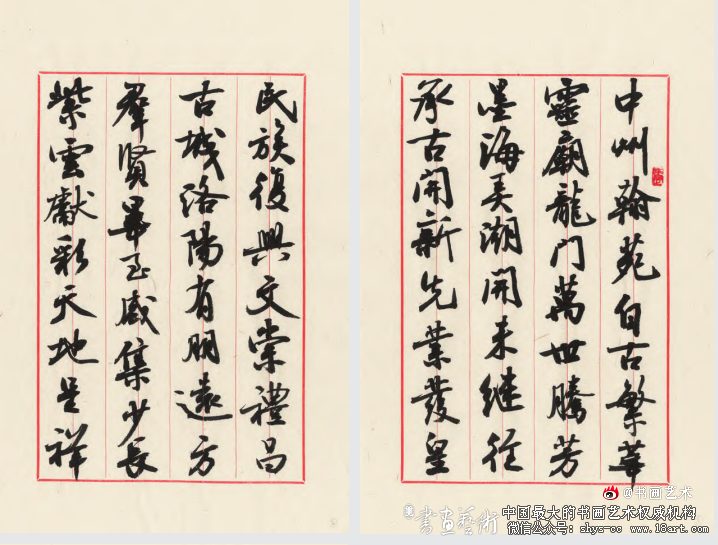 中州翰苑自古繁華
靈廟龍門萬世騰芳
墨海弄潮開来继往
承古開新先業發皇
民族復興文崇禮昌
古城洛陽有朋遠方
羣賢畢至咸集少長
紫雲獻彩天地呈祥
@书画艺术
書画藝術
中国最大的书画艺术权威机构
微信公众号: shys-cc www.18art.com